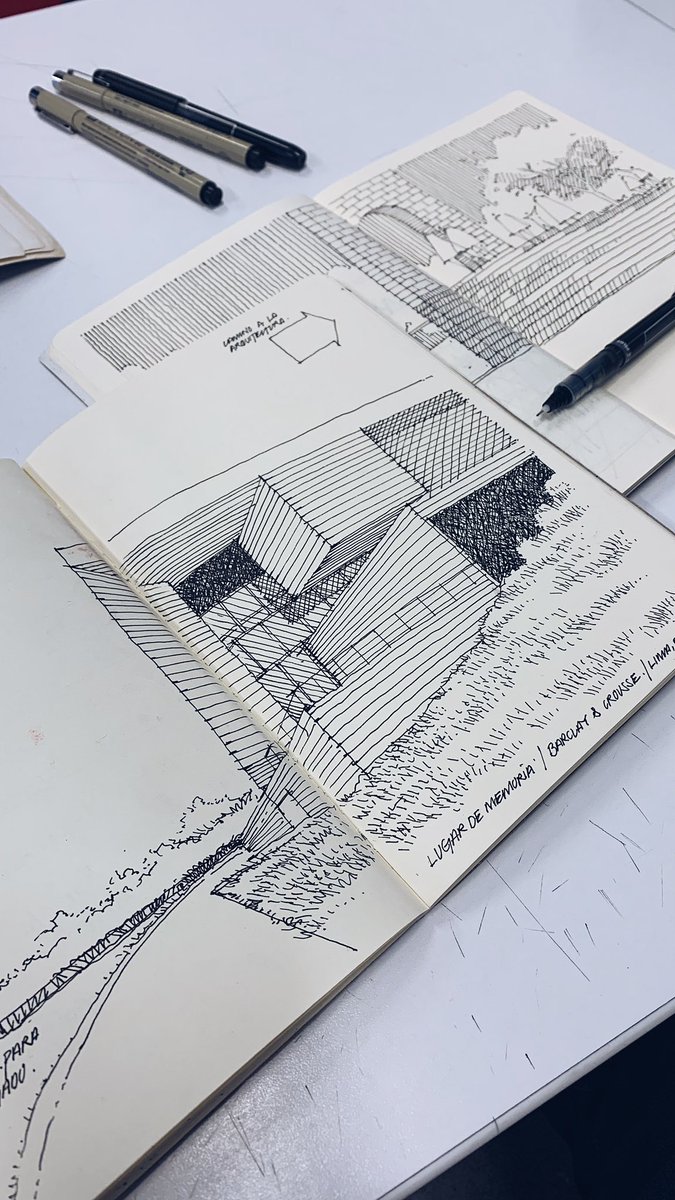 CAMINO A LA
ARQUITECTURA.
LUGAR DE MEMORIA / BARCLAY & CROUSSE / LIMA,
PARA